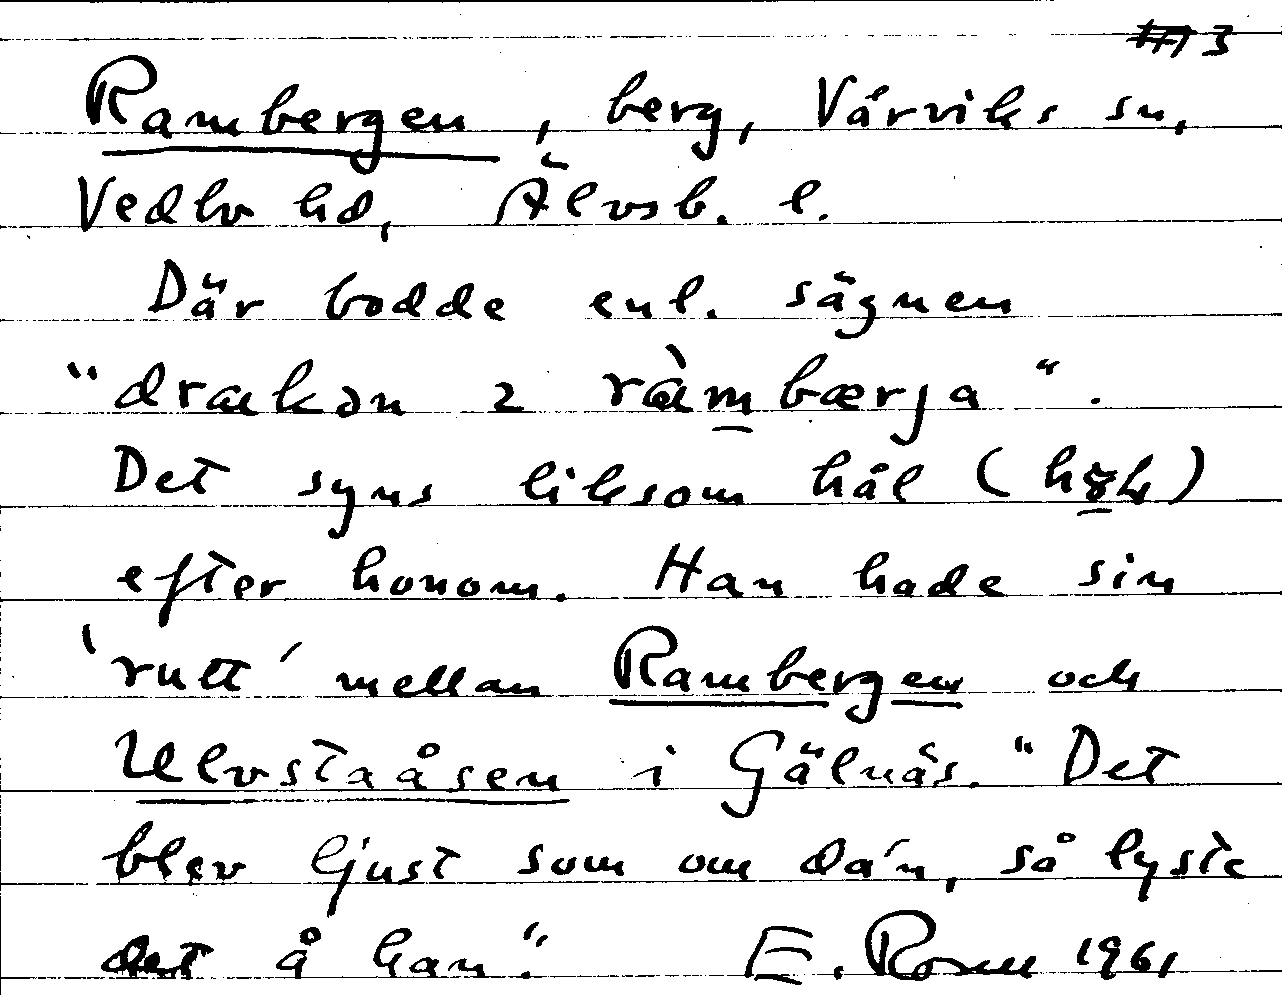 3
Rambergen, berg, Värviks sn,
Vedbo hd, Älvsb. l.
Där bodde enl. sägnen
"drakən ɩ ràmbærja".
Det syns liksom hål (
efter honom. Han hade sin
'rutt' mellan Rambergen och
Ulvstaåsen i Gälnäs. "Det
blev ljust som om da'n, så lyste
det å han". E. Rosell 1961